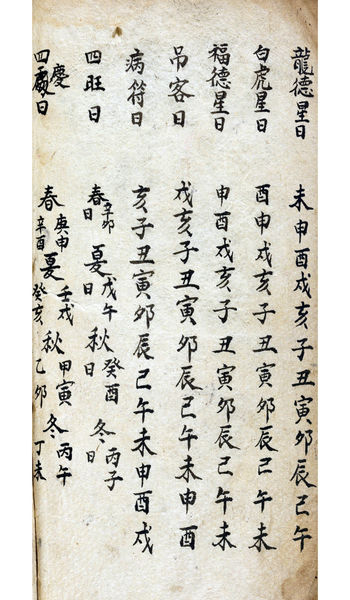 龍德星日 未申酉戌亥子丑寅卯辰己午
白虎星日 酉申戌亥子丑寅卯辰己午未
福德星日 申酉戌亥子丑寅卯辰己午未
吊客日 戌亥子丑寅卯辰己午未申酉
病符日 亥子丑寅卯辰己午未申酉戌
四旺日 春日辛卯 夏日戊午 秋日癸酉 冬日丙子
四慶日 春庚申辛酉 夏壬戌癸亥 秋甲寅乙卯 冬丙午丁未